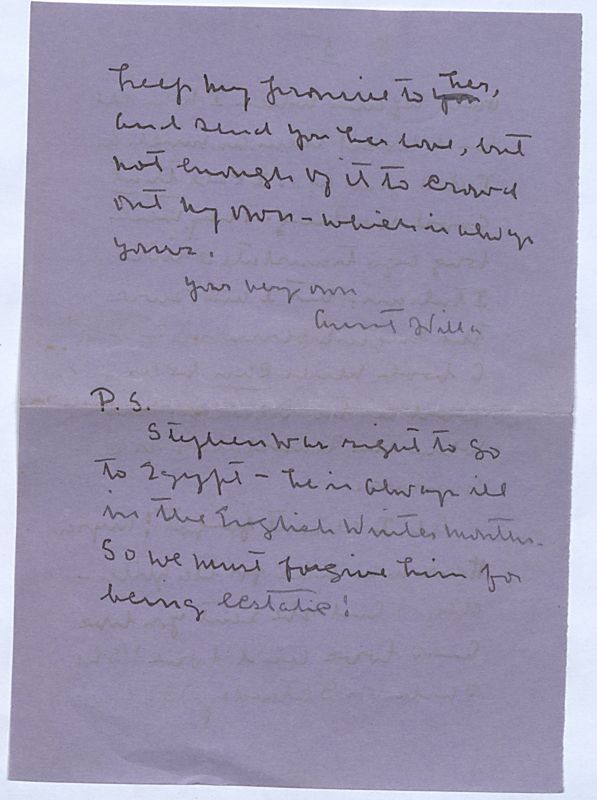 keep my promise to you her,
and send you her love, but
not enough of it to crowd
out my own - which is always
yours.
Your very own
Aunt Willa
P.S.
Stephen was right to go
to Egypt - he is always ill
in the English Winter months.
So we must forgive him for
being ecstatic!